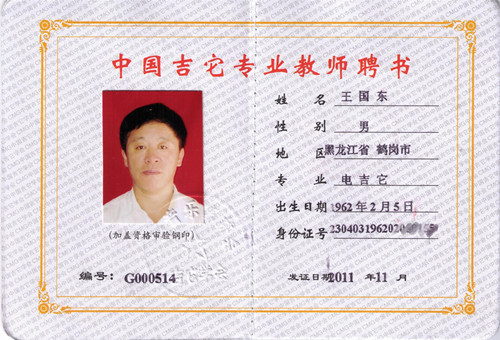 中国吉它专业教师聘书
姓 名 王国东
性 别 男
地 区 黑龙江省 鹤岗市
专 业 电吉它
出生日期 1962年2月5日
身份证号
(加盖资格审验钢印)
编号: G000514
发证日期 2011 年 11 月